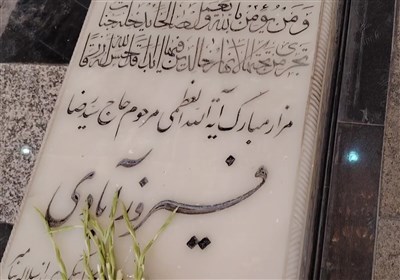 وَمَنْ يُؤْمِنْ بِاللهِ وَيَعْمَلْ صالِحاً يُدْخِلْهُ جَنّاتٍ
تَجْرِي مِنْ تَحْتِهَا الْاَنْهارُ خالِدِينَ فِيها اَبَداً قَدْ اَحْسَنَ اللهُ لَهُ رِزْقاً
مزار مبارک آیة الله العظمی مرحوم حاج سید رضا
فیروزآبادی